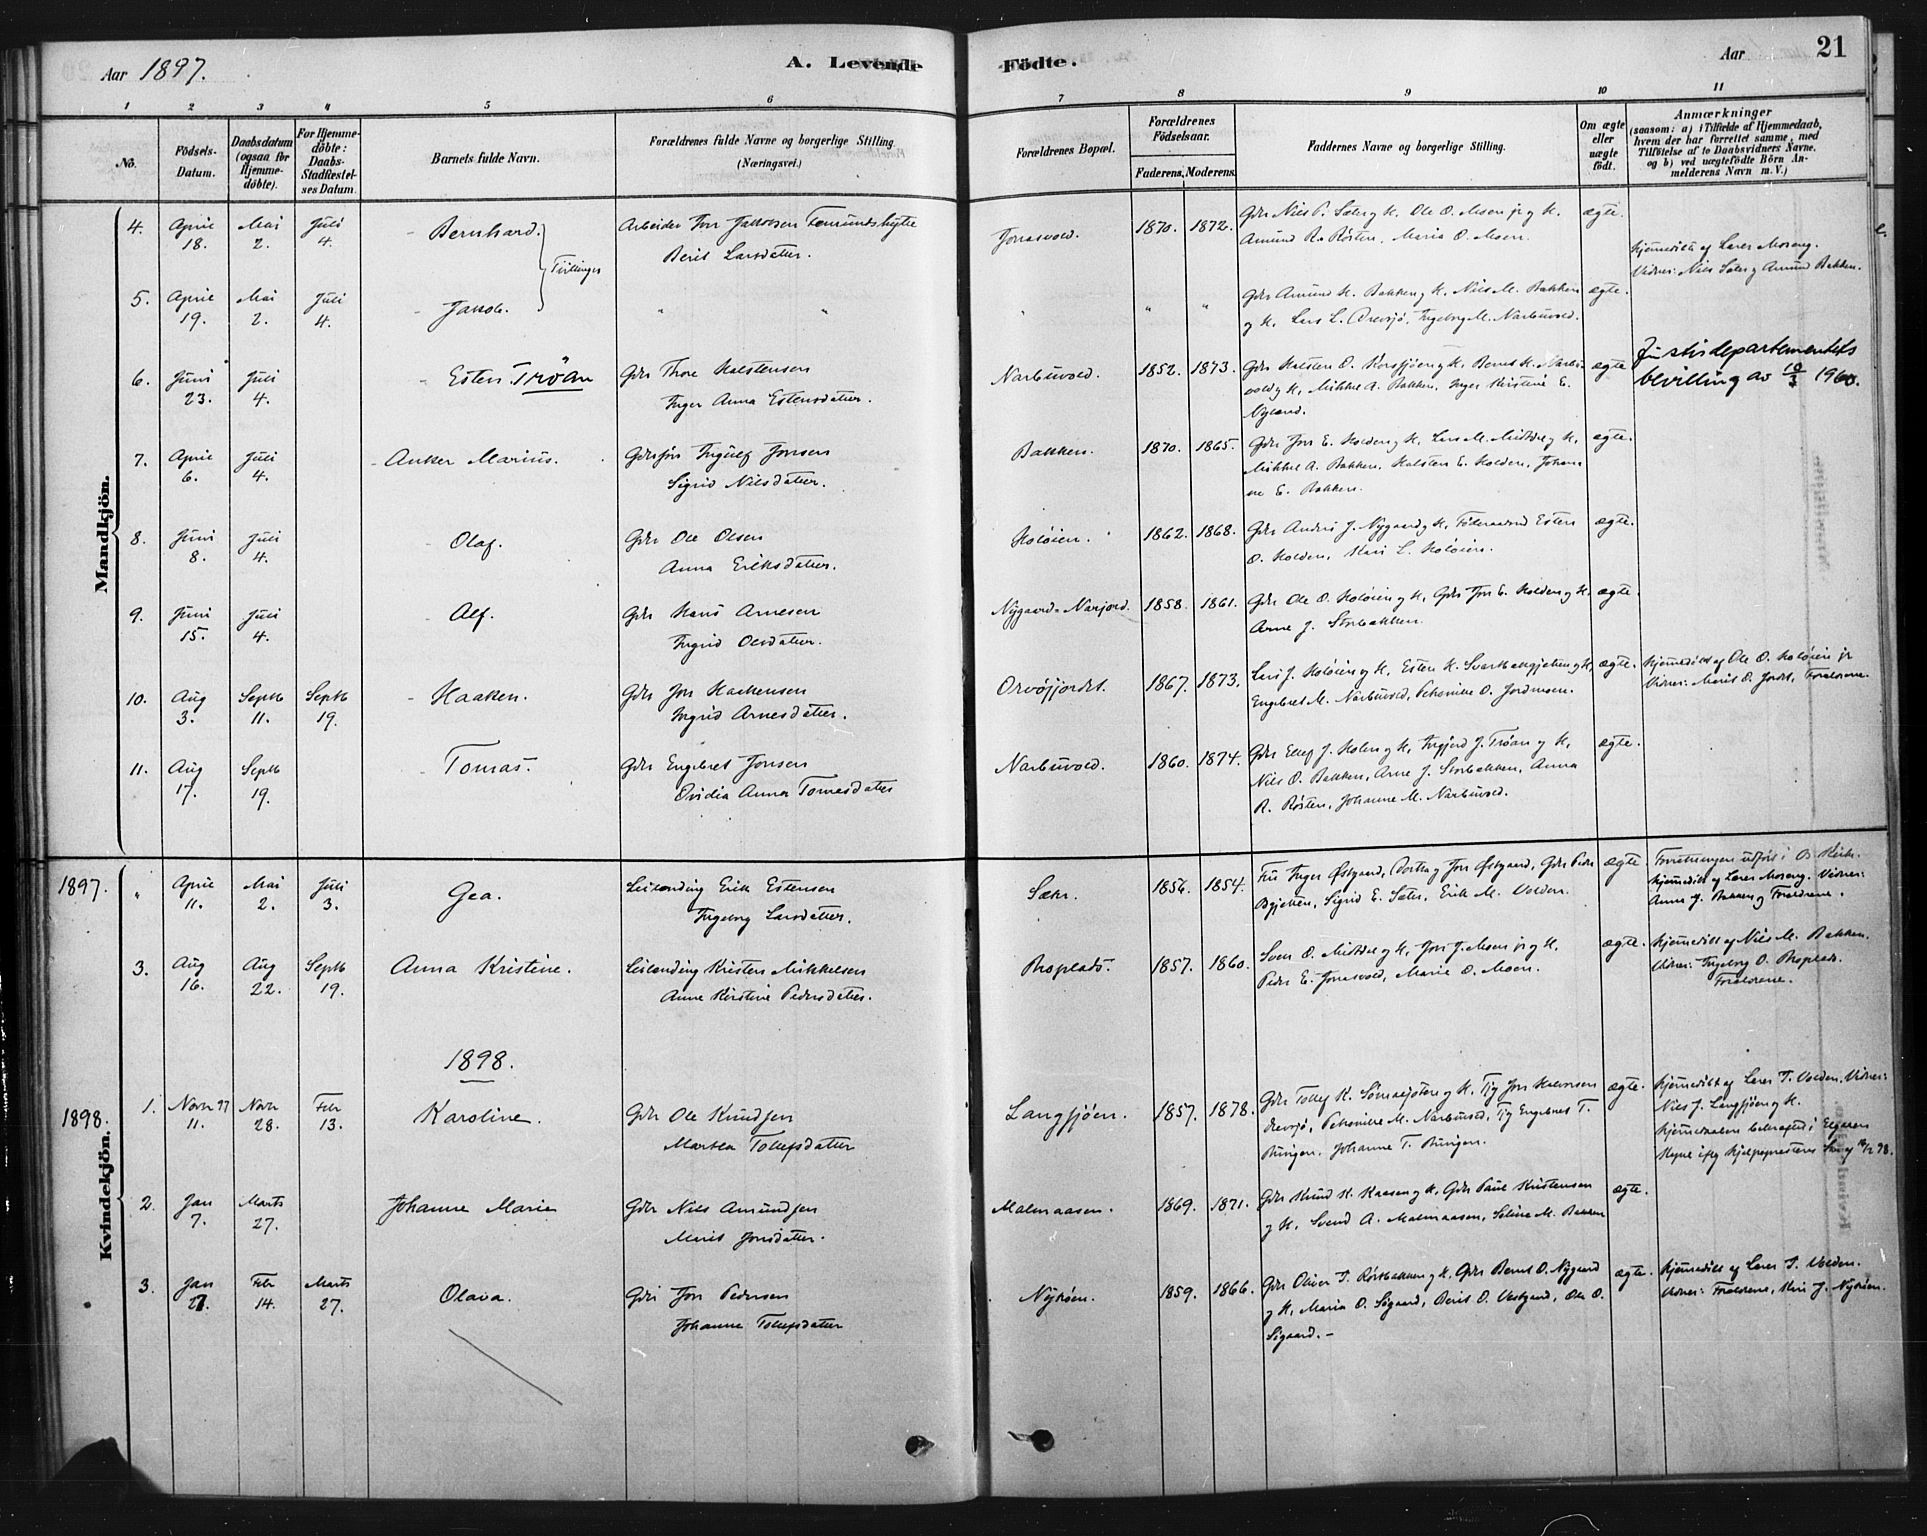 Aar 1897.
A. Levende
Födte.
Aar
21
1 2 3 4 5 6 7 8 9 10 11
No.
Födsels-Datum.
Daabsdatum (ogsaa for Hjemme-döbte).
For Hjemme-döbte: Daabs-Stadfæstel-ses Datum.
Barnets fulde Navn.
Forældrenes fulde Navne og borgerlige Stilling.
(Næringsvei.)
Forældrenes Bopæl.
Forældrenes Födselsaar.
Faderens. Moderens.
Faddernes Navne og borgerlige Stilling.
Om ægte eller uægte födt.
Anmærkninger
(saasom: a) i Tilfælde af Hjemmedaab,
hvem der har forrettet samme, med
Tilföielse af to Daabsvidners Navne,
og b) ved uægtefödte Börn An-
melderens Navn m. V.)
Mandkjön.
4. April 18. Mai 2. Juli 4. Bernhard. Arbeider Jon Jakobsen Femundshytte
Berit Larsdatter.
Tvillinger
Jonasvold. 1870. 1872. Gdr Nils P. Sæter og K. Ole O. Moen jr og K.
Amund R. Røsten, Maria O. Moen. ægte.
Hjemmedøbt af Lærer Moseng.
Vidner: Nils Sæter og Amund Bakken.
5. April 19. Mai 2. Juli 4. Jakob. " "
" " " Gdr Amund K. Bakken og K. Nils M. Bakken
og K. Lars L. Drevsjø, Ingeborg M. Narbuvold. ægte.
6. Juni 23. Juli 4. Esten Trøan Gdr Thore Halstensen
Inger Anna Estensdatter.
Narbuvold. 1852. 1873. Gdr Halsten O. Korssjøen og K. Bernt K. Narbu-
vold og K. Mikkel A. Bakken, Inger Kristine E.
Nyland. ægte
Justisdepartementets
bevilling av 10/3 1960.
7. April 6. Juli 4. Anker Marius. Gdrsøn Ingulf Jonsen
Sigrid Nilsdatter.
Bakken. 1870. 1865. Gdr Jon E. Holden og K. Lars M. Midtdal og K.
Mikkel A. Bakken, Halsten E. Holden, Johan-
ne E. Bakken. ægte.
8. Juni 8. Juli 4. Olaf. Gdr Ole Olsen
Anna Eriksdatter.
Holøien. 1862. 1868. Gdr Anders J. Nygaard og K. Føderaadsmd Esten
O. Holden, Kari L. Holøien. ægte.
9. Juni 15. Juli 4. Alf. Gdr Hans Arnesen
Ingrid Olsdatter.
Nygaard-Narjord. 1858. 1861. Gdr Ole O. Holøien og K. Gdr Jon E. Holden og K.
Arne J. Storbakken. ægte.
10. Aug 3. Septb 11. Septb 19. Haaken. Gdr Jon Haakensen
Ingrid Arnesdatter.
Orvøsjordet. 1867. 1873. Lars J. Holøien og K. Esten K. Svartbækgjelten og K.
Engebret M. Narbuvold, Petronille O. Jordmoen. ægte.
Hjemmedøbt af Ole O. Holøien jr
Vidner: Marit O. Jordet, Forældrene.
11. Aug 17. Septb 19. Tomas. Gdr Engebret Jonsen
Ovidia Anna Tomasdatter
Narbuvold. 1860. 1874. Gdr Ellef J. Holen og K. Ingjerd J. Trøan og K.
Nils O. Bakken, Arne J. Storbakken, Anna
R. Røsten, Johanne M. Narbuvold. ægte.
1897.
" April 11. Mai 2. Juli 3. Gea. Leilending Erik Estensen
Ingeborg Larsdatter.
Sæter. 1856. 1854. Fru Inger Østgaard, Dorthe og Jon Østgaard, Gdr Peder
Bgjelten, Sigrid E. Sæter, Erik M. Volden. ægte.
Forretningen udført i B. Kirke.
Hjemmedøbt af Lærer Moseng. Vidner:
Anne J. Bakken og Forældrene.
3. Aug 16. Aug 22. Septb 19. Anna Kristine. Leilending Kristen Mikkelsen
Anne Kirstine Pedersdatter.
Moplads. 1857. 1860. Svem O. Midtdal og K. Jon J. Moen jr og K.
Peder E. Jonasvold, Marie O. Moen. ægte.
Hjemmedøbt af Nils M. Bakken.
Vidner: Ingeborg O. Moplads.
Forældrene.
1898.
1898.
Kvindekjön.
1. Novb 97 11. Novb 28. Febr 13. Karoline. Gdr Ole Knudsen
Martha Tollefsdatter
Langsjøen. 1857. 1878. Gdr Tollef K. Sømaajoten og K. Tjg Jon Halvorsen
Drevsjø, Petronille M. Narbuvold, Tjg Engebret T.
Buingen, Johanne T. Buingen. ægte.
Hjemmedøbt af Lærer T. Volden. Vidner:
Nils J. Langsjøen og K.
Hjemmedaaben bekræftet i Elgaaen
2. Jan 7. Marts 27. Johanne Marie Gdr Nils Amundsen
Marit Jonsdatter.
Malmaasen. 1869. 1871. Gdr Knud K. Kaasen og K. Gdr Paul Kristensen
og K. Svend A. Malmaasen, Seline M. Bakken ægte.
3. Jan 21. Febr 14. Marts 27. Olava. Gdr Jon Pedersen
Johanne Tollefsdatter
Nyrøen. 1859. 1866. Gdr Oliver T. Røstbakken og K. Gdr Bernt O. Nygaard
og K. Maria O. Sigaard, Berit O. Vestgaard, Ole O.
Sigaard.- ægte.
Hjemmedøbt af Lærer T. Volden.
Vidner: Forældrene, Kari J. Nyrøen.